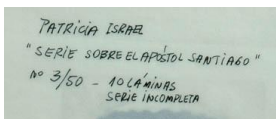 PATRICIA ISRAEL
"SERIE SOBRE EL APÓSTOL SANTIAGO"
Nº 3/50 - 10 LÁMINAS
SERIE INCOMPLETA